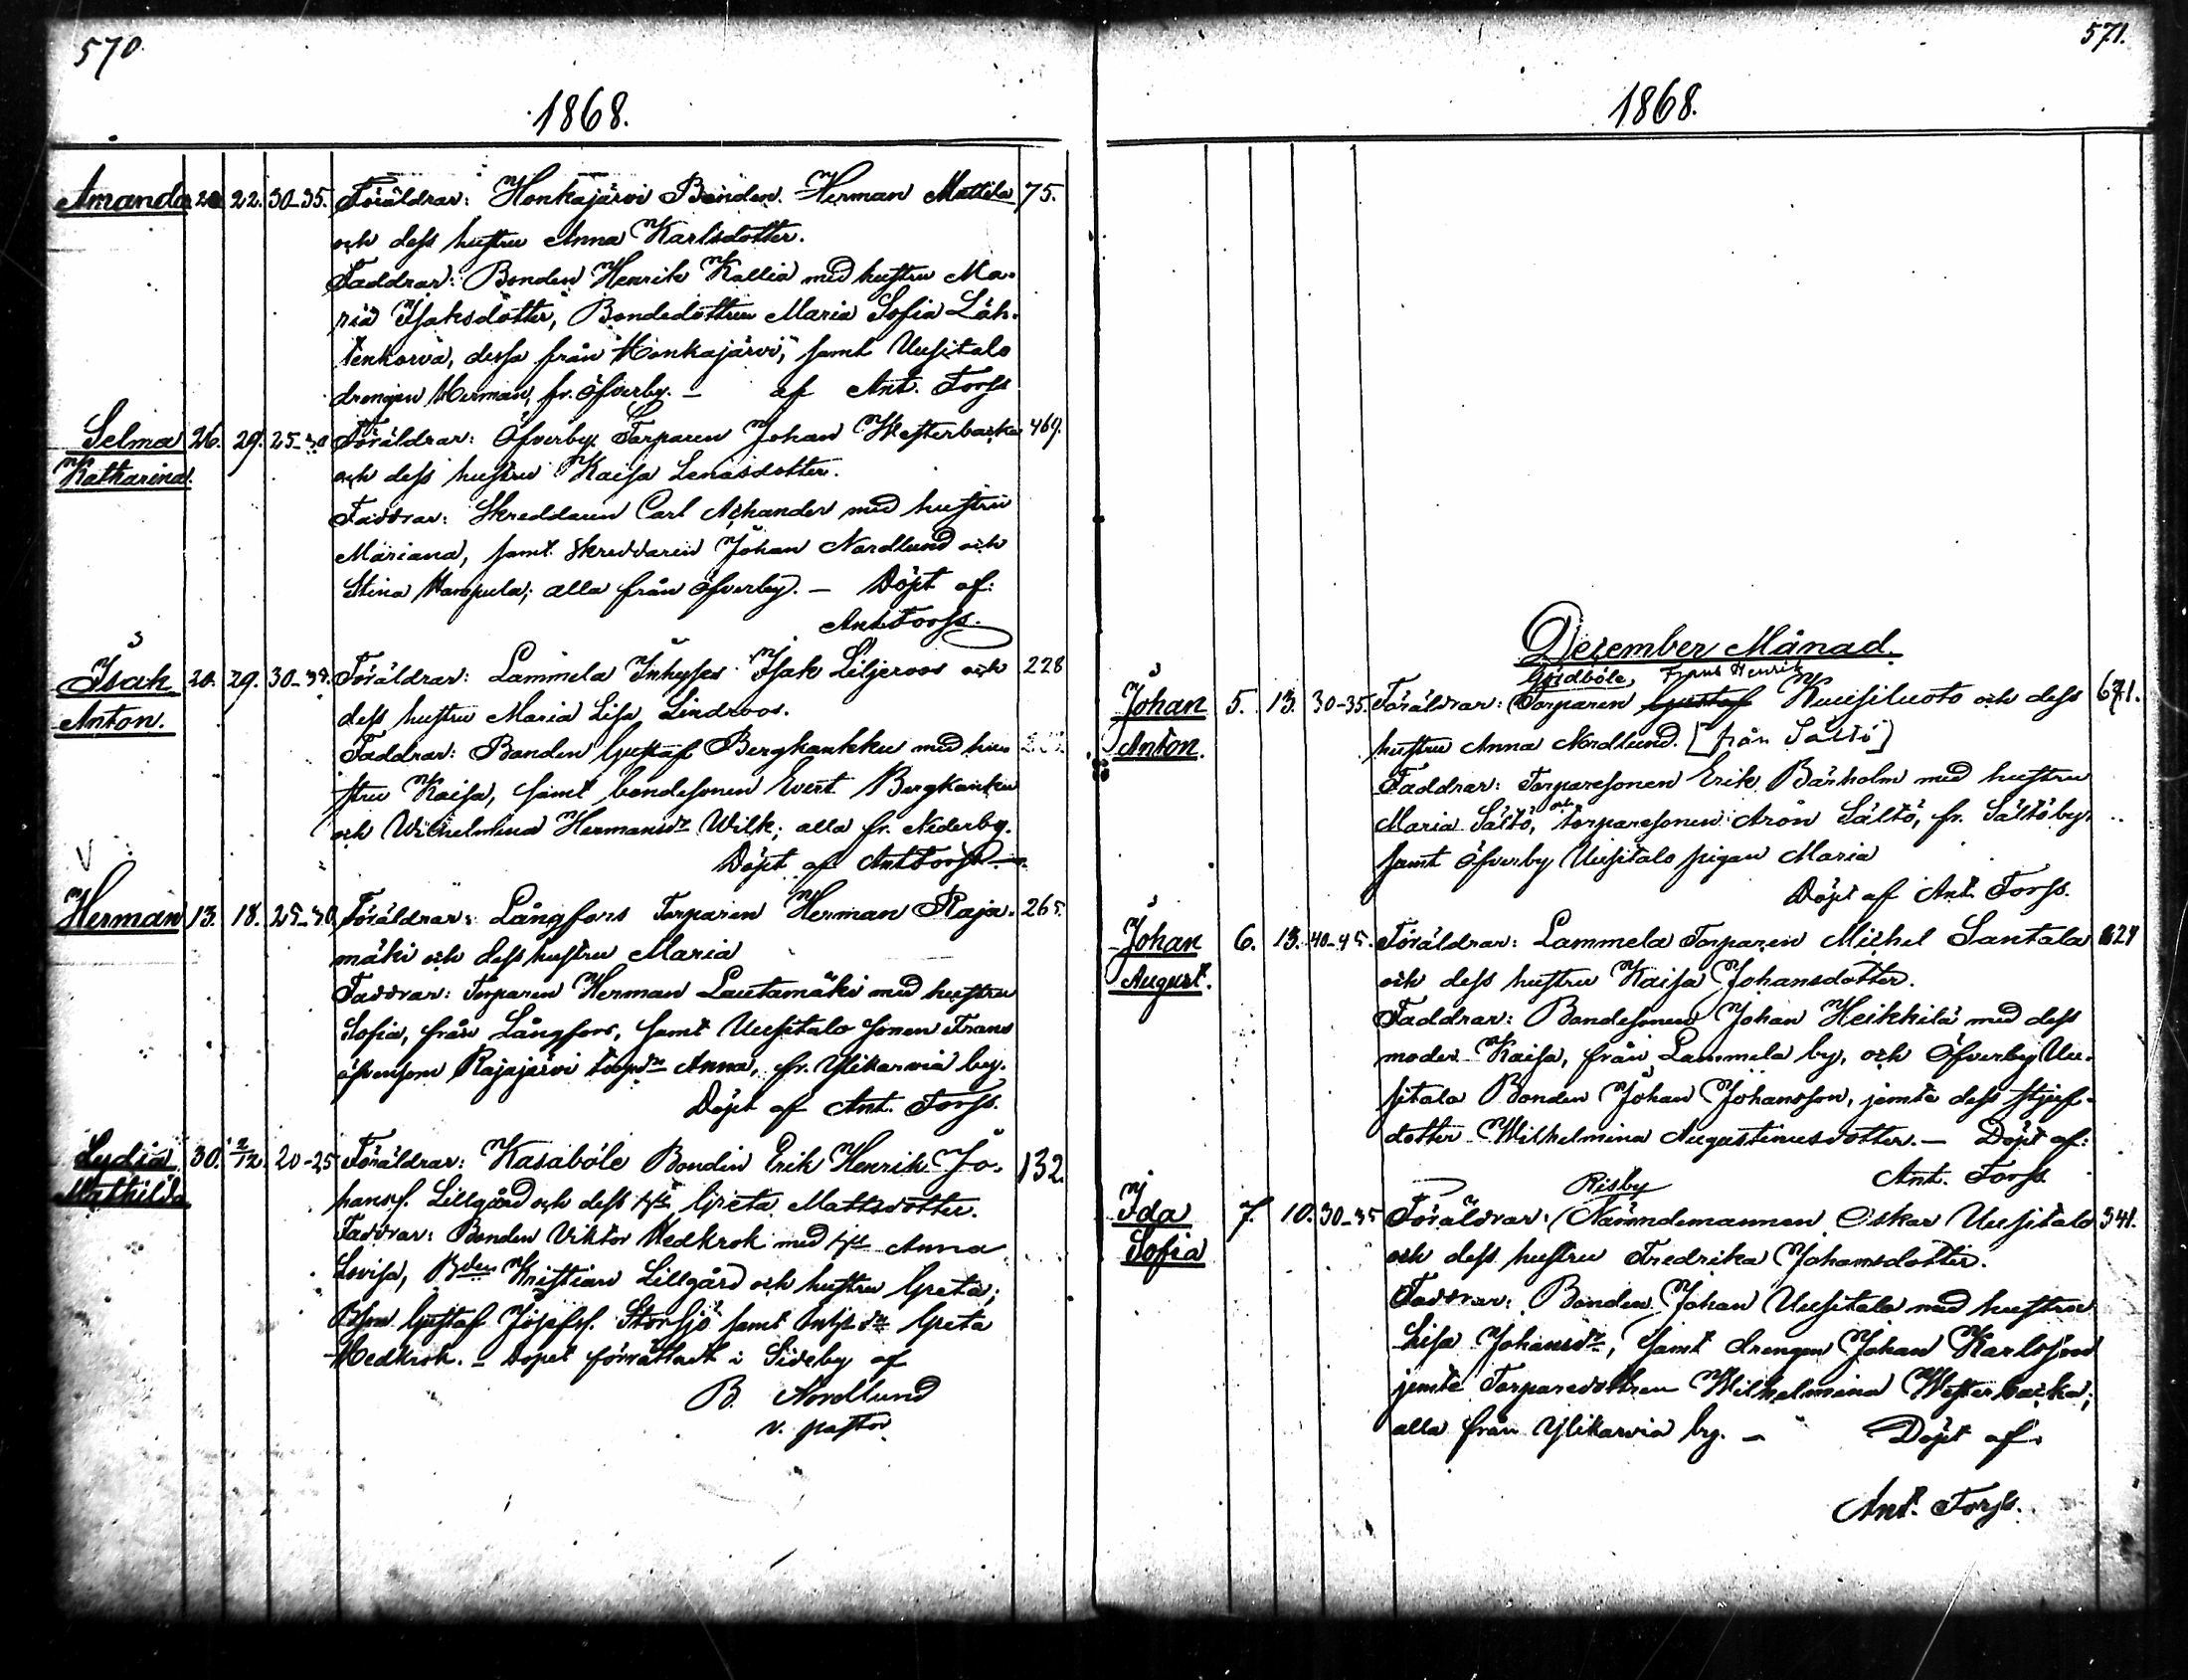 570
1868.
Amanda 20 22. 30-35. Föräldrar: Honkajärvi Bonden Herman Mattila 75.
och dess hustru Anna Karlsdotter.
Faddrar: Bonden Henrik Kallia med hustru Ma-
ria Isaksdotter, Bondedottren Maria Sofia Läh-
tenkorva, dessa från Honkajärvi, samt Uusitalo
drengen Herman, fr. Öfverby. – af Ant. Forss
Selma 26. 29. 25-30 Föräldrar: Öfverby Torparen Johan Westerbacka 469.
Katharina. och dess hustru Kaisa Lenasdotter.
Faddrar: Skreddaren Carl Achander med hustru
Mariana, samt skreddaren Johan Nordlund och
Stina Hampula; alla från Öfverby. – Döpt af:
Ant. Forss.
Isak 20. 29. 30-35. Föräldrar: Lammela Inhyses Isak Liljeroos och 228
Anton. dess hustru Maria Lisa Lindroos.
Faddrar: Bonden Gustaf Bergkankku med hu-
stru Kaisa, samt bondesonen Evert Bergkankku
och Wilhelmina Hermansdr Wilk; alla fr. Nederby.
Döpt af Ant Forss
V
Herman 13. 18. 25-30 Föräldrar: Långfors Torparen Herman Raja- 265.
mäki och dess hustru Maria
Faddrar: Torparen Herman Lautamäki med hustru
Sofia, från Långfors, samt Uusitalo sonen Frans
äfvensom Rajajärvi torpdr Anna, fr. Ylikarvia by.
Döpt af Ant. Forss.
Lydia 30. 2/12. 20-25 Föräldrar: Kasaböle Bonden Erik Henrik Jo- 132.
Mathilda hanss. Lillgård och dess hu Greta Mattsdotter.
Faddrar: Bonden Viktor Hedkrok med hu Anna
Lovisa, Bden Kristian Lillgård och hustru Greta;
Gustaf Josefss. Storsjö samt dr Greta
Hedkrok. – Dopet förrättadt i Sideby af
B. Nordlund
v. pastor
571.
1868.
December Månad.
Gårdböle, Frans Henrik
Johan 5. 13. 30-35. Föräldrar: (Torparen Gustaf Kuusiluoto och dess 671.
Anton. hustru Anna Nordlund. [från Sältö]
Faddrar: Torparesonen Erik Bärholm med hustru
Maria Sältö, och torparesonen Aron Sältö, fr. Sältöby,
samt Öfverby Uusitalo pigan Maria
Döpt af Ant. Forss.
Johan 6. 13. 40-45. Föräldrar: Lammela Torparen Michel Santala 624
August. och dess hustru Kaisa Johansdotter.
Faddrar: Bondesonen Johan Heikkilä med dess
moder Kaisa, från Lammela by, och Öfverby Uu-
sitalo Bonden Johan Johansson, jemte dess stjuf-
dotter Wilhelmina Augustinusdotter. – Döpt af:
Ant. Forss.
Risby
Ida 7. 10. 30-35 Föräldrar: (Nämndemannen Oskar Uusitalo 341.
Sofia och dess hustru Fredrika Johansdotter.
Faddrar: Bonden Johan Uusitalo med hustru
Lisa Johansdr, samt drengen Johan Karlsson
jemte Torparedottren Wilhelmina Westerbacka;
alla från Ylikarvia by. – Döpt af:
Ant. Forss.